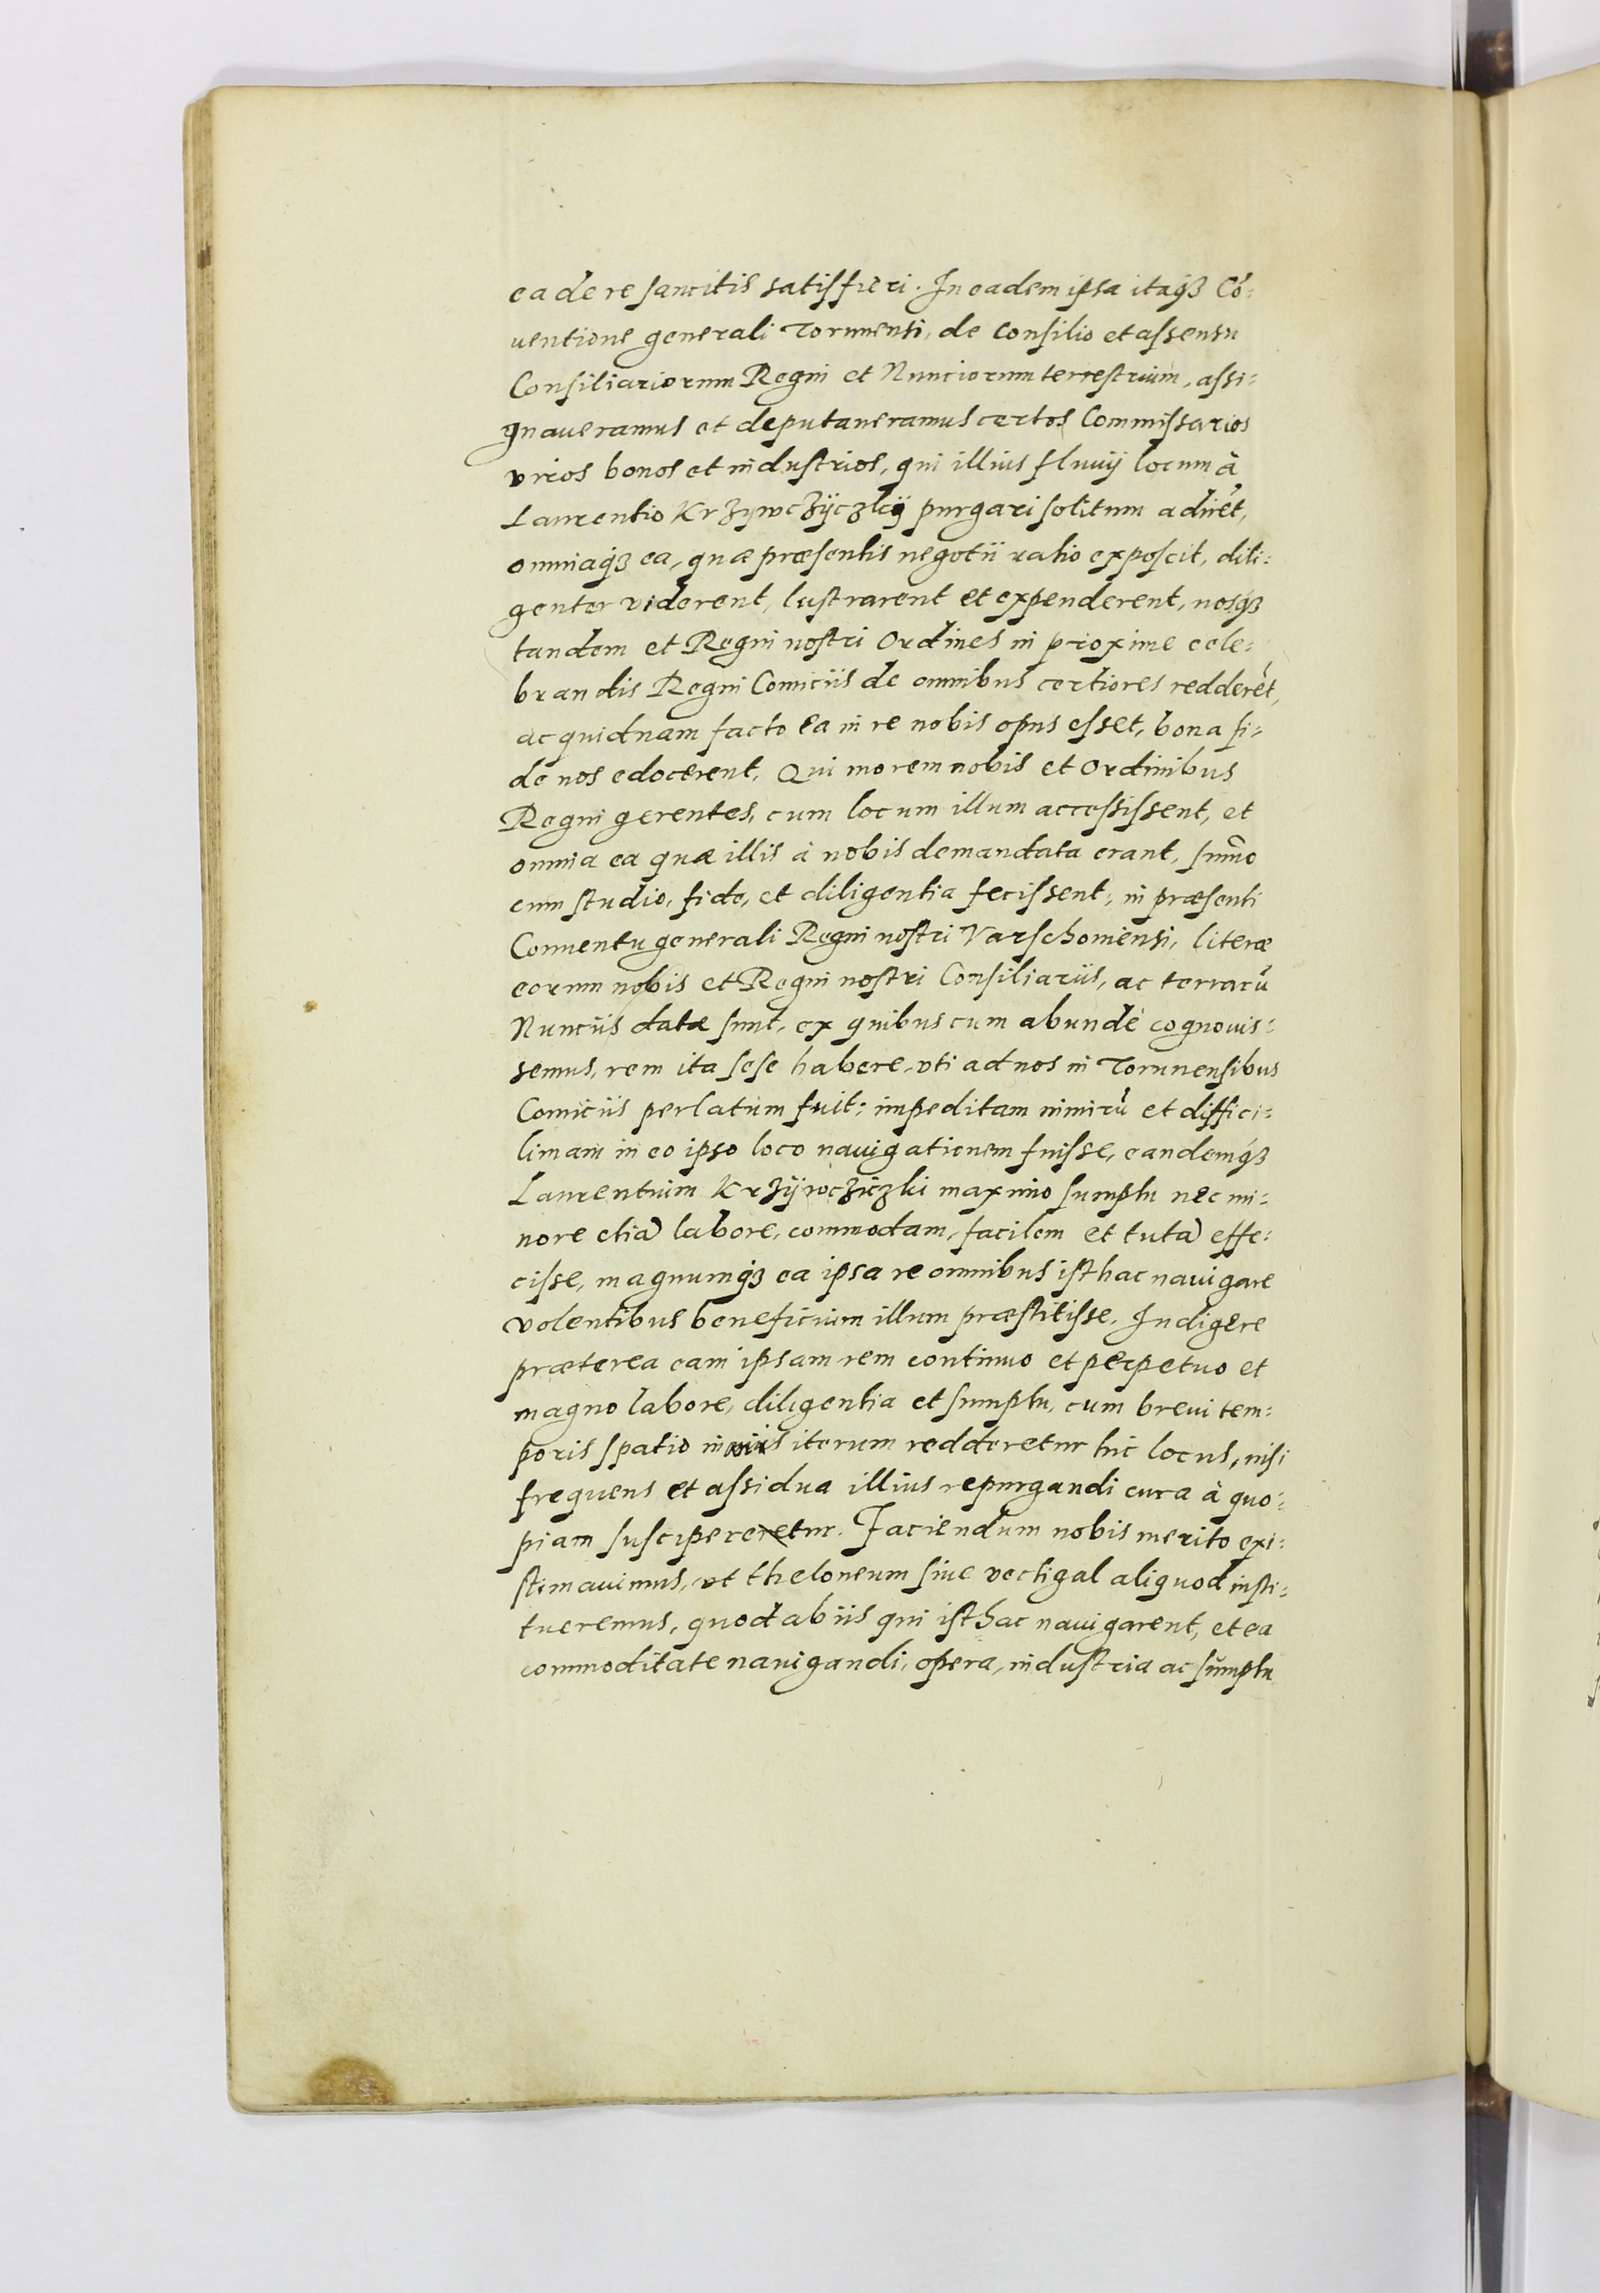 ea de re sancitis satisfieri. In eadem ipsa itaqꝫ Cō-
uentione generali Torunensi, de consilio et assensu
Consiliariorum Regni et Nunciorum terrestrium, assi-
gnaueramus et deputaueramus certos Commissarios
viros bonos et industrios, qui illius fluuij locum à
Laurentio Krzywczÿczkÿ purgari solitum adirēt,
omniaqꝫ ea, quæ præsentis negotii ratio exposcit, dili-
genter viderent, lustrarent et expenderent, nosqꝫ
tandem et Regni nostri Ordines in proxime cele-
brandis Regni Comiciis de omnibus certiores redderēt,
ac quidnam facto ea in re nobis opus esset, bona fi-
de nos edocerent. Qui morem nobis et Ordinibus
Regni gerentes, cum locum illum accessissent, et
omnia ea quæ illis à nobis demandata erant, sum̄o
cum studio, fide, et diligentia fecissent, in præsenti
Conuentu generali Regni nostri Varschouiensi, literæ
eorum nobis et Regni nostri Consiliariis, ac terrarū
Nunciis datæ sunt, ex quibus cum abundè cognouis-
semus, rem ita sese habere, vti ad nos in Torunensibus
Comiciis perlatum fuit; impeditam nimirū et diffici-
limam in eo ipso loco nauigationem fuisse, eandemqꝫ
Laurentium Krzÿwcziczki maximo sumptu nec mi-
nore etiā labore, commodam, facilem et tutā effe-
cisse, magnumqꝫ ea ipsa re omnibus isthac nauigare
volentibus beneficium illum præstitisse. Indigere
præterea eam ipsam rem continuo et perpetuo et
magno labore, diligentia et sumptu, cum breui tem-
poris spatio inuius iterum redderetur hic locus, nisi
frequens et assidua illius repurgandi cura à quo-
piam susciperetur. Faciendum nobis merito exi-
stimauimus, vt theloneum siue vectigal aliquod insti-
tueremus, quod ab iis qui isthac nauigarent, et ea
commoditate nauigandi, opera, industria ac sumptu